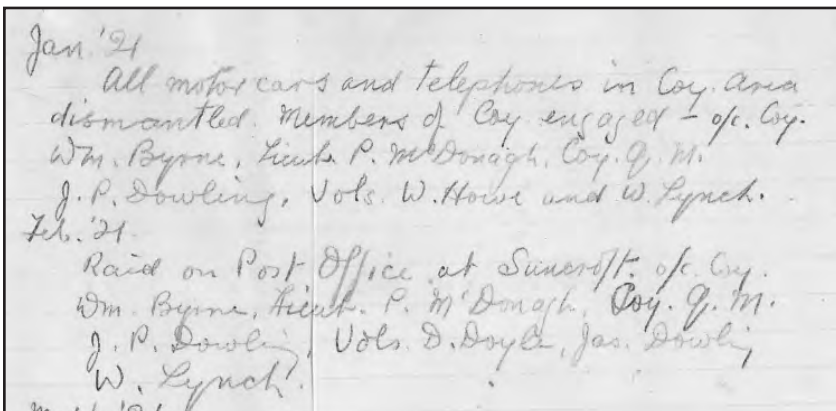 Jan. '21
All motor cars and telephones in Coy. area
dismantled. Members of Coy engaged – o/c. Coy.
Wm. Byrne, Lieut. P. McDonagh, Coy. Q. M.
J. P. Dowling, Vols. W. Howe and W. Lynch.
Feb. '21.
Raid on Post Office at Suncroft. o/c. Coy.
Wm. Byrne, Lieut. P. McDonagh, Coy. Q. M.
J. P. Dowling, Vols. D. Doyle, Jas. Dowling
W. Lynch.